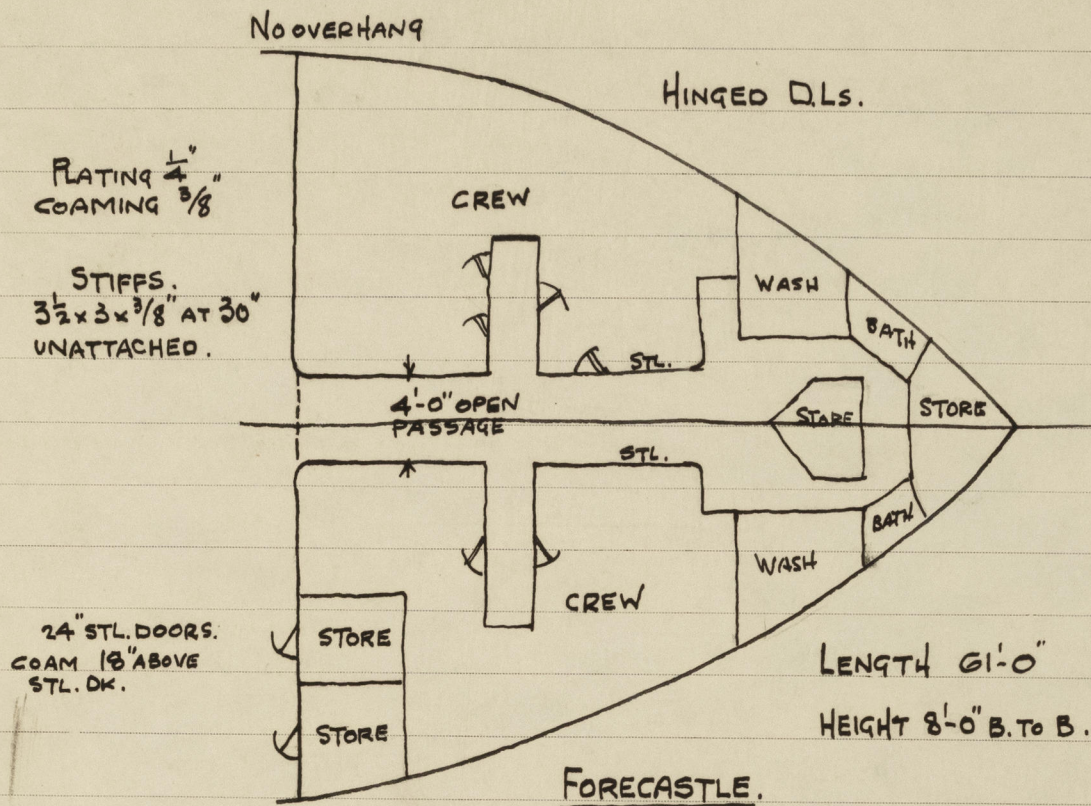 NO OVERHANG
HINGED D.LS.
PLATING 1/4"
COAMING 3/8"
STIFFS.
3 1/2 x 3 x 3/8" AT 30"
UNATTACHED.
CREW
WASH
BATH
STL.
4'-0" OPEN
PASSAGE
STORE
STORE
STL.
BATH
WASH
CREW
24" STL. DOORS.
COAM 18" ABOVE
STL. DK.
STORE
STORE
LENGTH 61'-0"
HEIGHT 8'-0" B. TO B.
FORECASTLE.